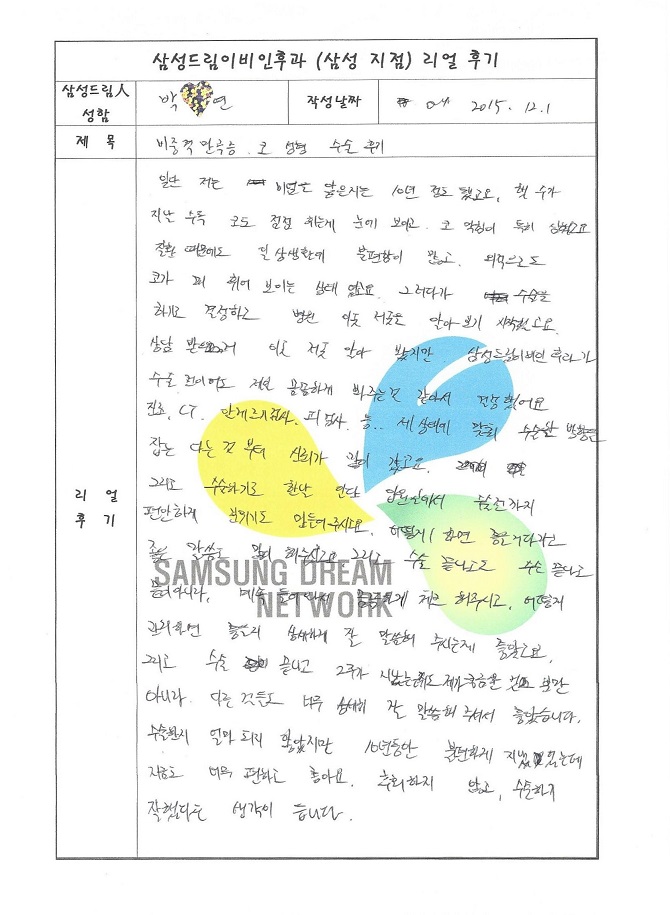 삼성드림이비인후과 (삼성 지점) 리얼 후기
삼성드림人 성함
박 연
작성날짜
04 2015. 12. 1
제 목
비중격 만곡증. 코 성형 수술 후기
리 얼 후 기
일단 저는 비염을 앓은지는 10년 정도 됐고요, 햇 수가
지난 수록 코도 점점 휘는게 눈에 보이고. 코 막힘이 특히 심했고요
질환 때문에도 일상생활에 불편함이 많고. 외적으로도
코가 휘어 보이는 상태 였고요. 그러다가 수술을
하기로 결정하고 병원 이곳 저곳을 알아보기 시작했고요.
상담 이곳 저곳 알아 봤지만 삼성드림이비인후과가
수술 전이어도 저의 꼼꼼하게 봐주는것 같아서 결정했어요
진료, CT, 알레르기검사, 피검사, 등.. 제 상태에 맞춰 수술할 방향을
잡는 다는것 부터 신뢰가 많이 갔고요.
그리고 수술하기로 한날 일단 입원실에서 수술전까지
편안하게 분위기도 만들어주시고요. 어떻게 하면 좋은거다라고
좋은 말씀도 많이 해주시고요. 그리고 수술 끝나고도 수술 끝나고
SAMSUNG DREAM
NETWORK
뿐아니라, 계속 들어 꼼꼼하게 체크 해주시고, 어떻게
관리하면 좋을지 상세하게 잘 말씀해 주시는게 좋았고요.
그리고 수술 끝나고 2주가 지났는데도 제가 궁금한 것 뿐만
아니라. 다른 것들도 너무 상세히 잘 말씀해 주셔서 좋았습니다.
수술한지 얼마 되지 않았지만 10년동안 불편하게 지냈 었는데
지금도 너무 편하고 좋아요. 후회하지 않고, 수술하기
잘했다는 생각이 듭니다.